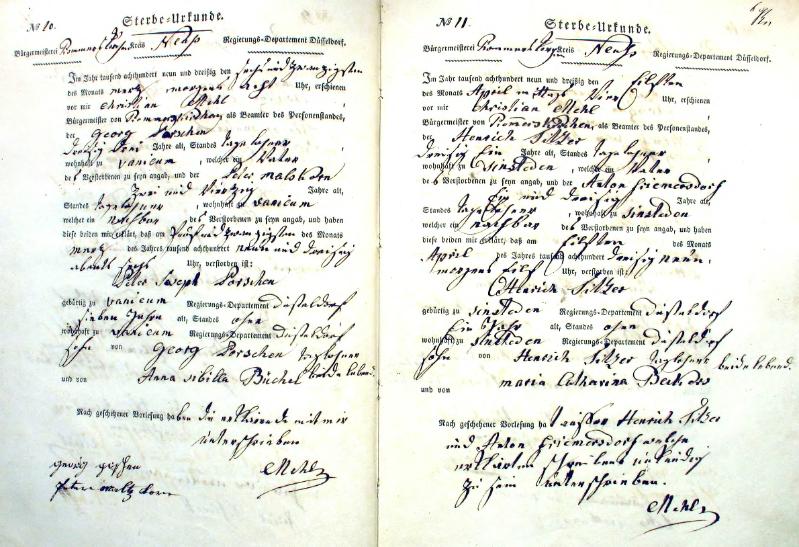 № 10. Sterbe-Urkunde.
Bürgermeisterei Rommerskirchen Kreis Neuss Regierungs-Departement Düsseldorf.
Im Jahr tausend achthundert neun und dreißig den sechs und zwanzigsten
des Monats merz morgens acht Uhr, erschienen
vor mir Christian Mehl
Bürgermeister von Rommerskirchen, als Beamter des Personenstandes,
der Georg Porschen
dreißig drei Jahre alt, Standes tagelohner
wohnhaft zu vanicum, welcher ein Vater
des Verstorbenen zu seyn angab, und der Peter
Zwei und vierzig Jahre alt,
Standes tagelohner, wohnhaft zu vanicum
welcher ein nachbar des Verstorbenen zu seyn angab, und haben
diese beiden mir erklärt, daß am fünf und zwanzigsten des Monats
merz des Jahres tausend achthundert neun und dreisig
abends sechs Uhr, verstorben ist:
Peter Joseph Porschen
gebürtig zu vanicum Regierungs-Departement düsseldorf
sieben Jahre alt, Standes ohne
wohnhaft zu vanicum Regierungs-Departement düsseldorf
sohn von Georg Porschen tagelohner
und von Anna sibilla Büchel beide lebend
Nach geschehener Vorlesung haben die erklärende mit mir
unterschrieben
Mehl
№ 11. Sterbe-Urkunde.
Bürgermeisterei Rommerskirchen Kreis Neuss Regierungs-Departement Düsseldorf.
Im Jahr tausend achthundert neun und dreißig den Eilften
des Monats April Vier Uhr, erschienen
vor mir Christian Mehl
Bürgermeister von Rommerskirchen, als Beamter des Personenstandes,
der Henrich Sitzer
dreisig Ein Jahre alt, Standes tagelohner
wohnhaft zu sinsteden, welcher ein Vater
des Verstorbenen zu seyn angab, und der Anton Eriemersdorf
Ein und dreisig Jahre alt,
Standes tagelohner, wohnhaft zu sinsteden
welcher ein nachbar des Verstorbenen zu seyn angab, und haben
diese beiden mir erklärt, daß am Eilften des Monats
April des Jahres tausend achthundert dreisig neun
morgens eilf Uhr, verstorben ist:
Henrich Sitzer
gebürtig zu sinsteden Regierungs-Departement düsseldorf
Ein Jahr alt, Standes ohne
wohnhaft zu sinsteden Regierungs-Departement düsseldorf
sohn von Henrich Sitzer tagelohner beide lebend.
und von maria Catharina
Nach geschehener Vorlesung ha Henrich Sitzer
und Anton Eriemersdorf welche
erklärten schreibens unkundig
zu sein unterschrieben.
Mehl